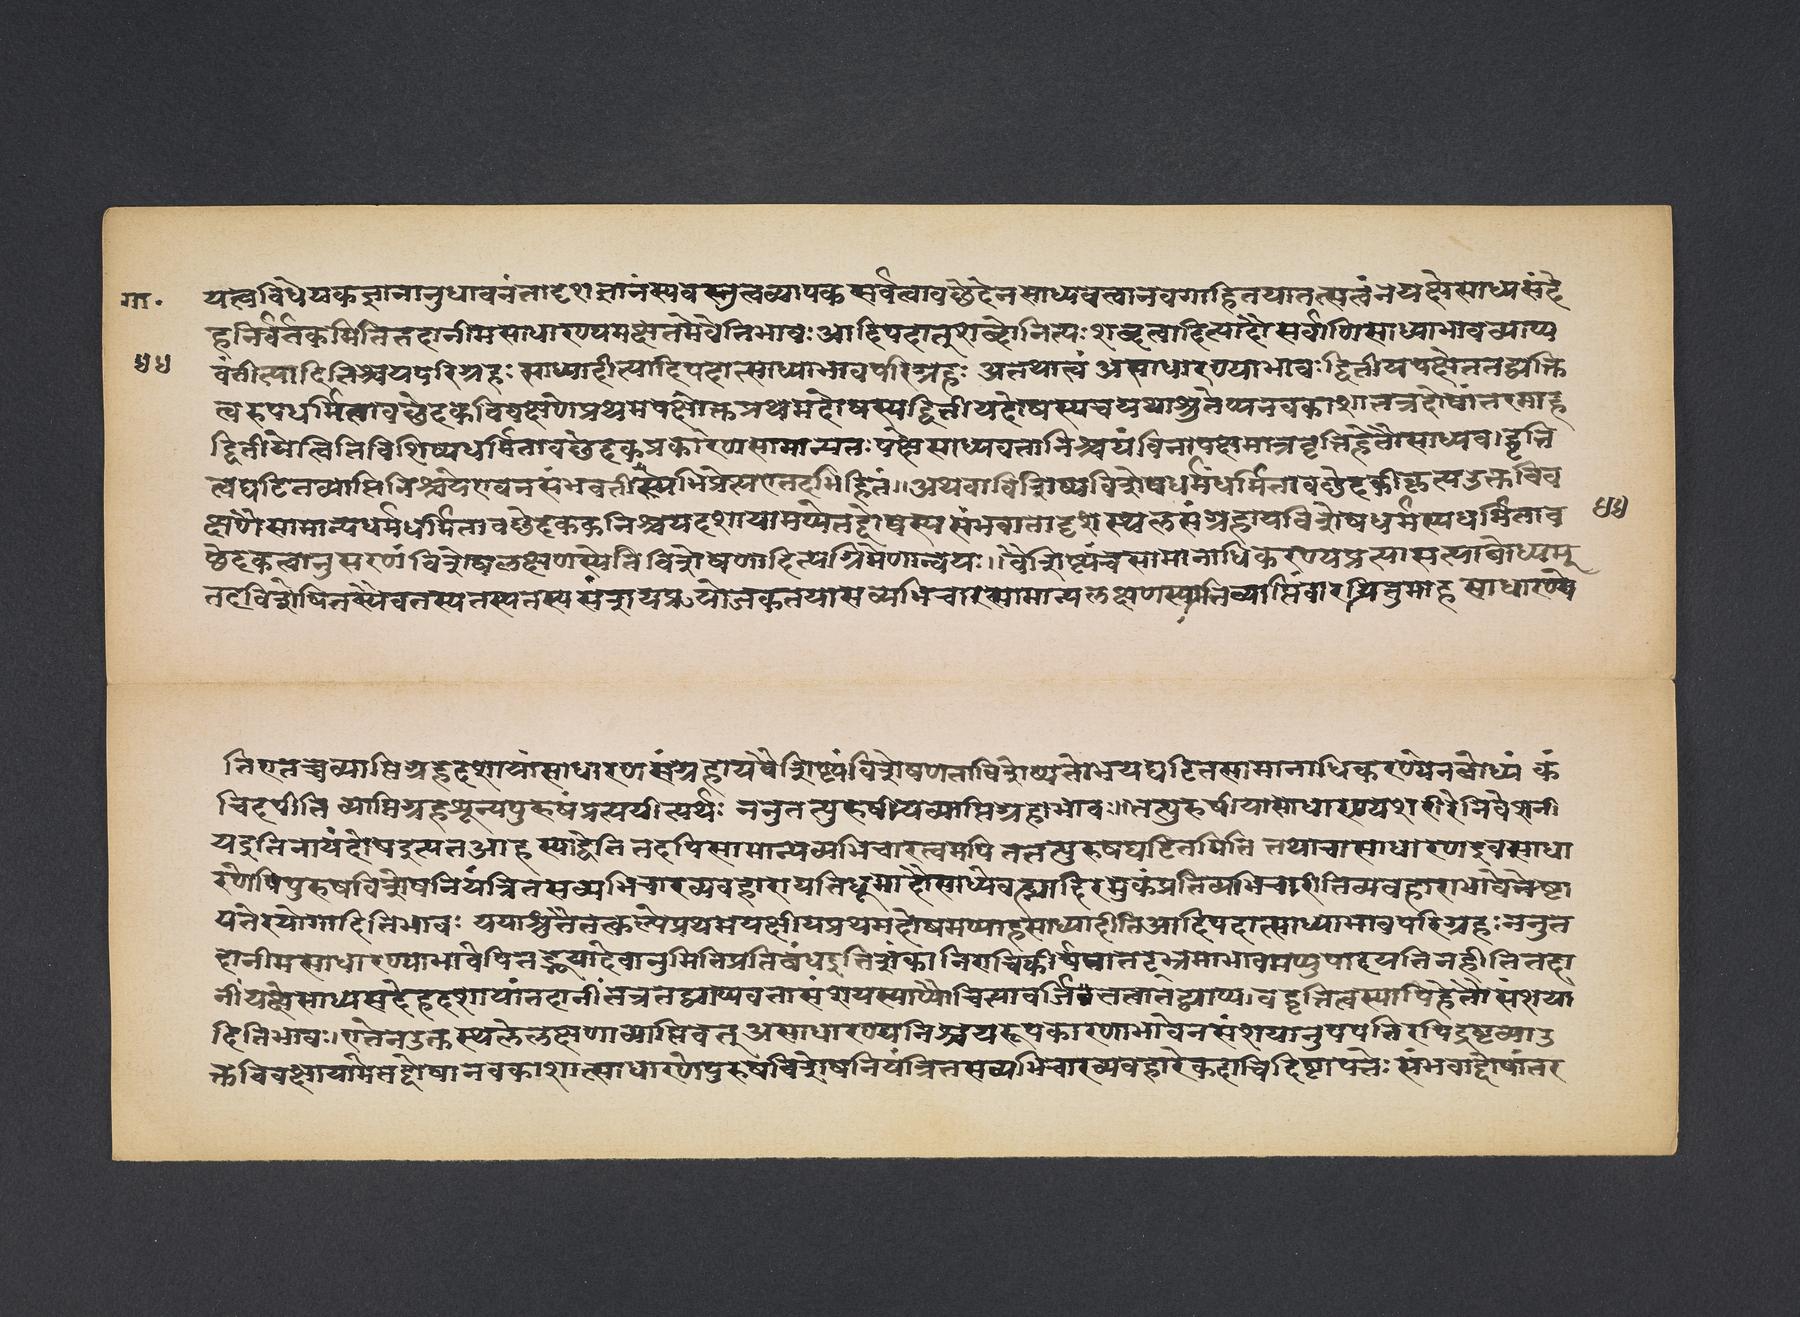 गा.
५५
यत्त्वविधेयकज्ञानानुधावनंतादृशज्ञानंस्पवस्तुत्वव्यापकसर्वत्वावछेदेनसाध्यवत्वानवगाहितयातत्सत्वेनयक्षेसाध्यसंदे
हनिर्वर्तकमितितदानीमसाधारण्यमक्षतमेवेतिभावः आदिपदातुशब्दोनित्यः शब्दत्वादित्यादौसर्वाणिसाध्याभावव्याप्य
वंतीत्यादिनिश्चयपरिग्रहः साध्यादीत्यादिपदात्साध्याभावपरिग्रहः अतथात्वं असाधारण्याभावः द्वितीयपक्षेततद्व्यक्ति
त्वरुपधर्मितावछेदकविवक्षणेप्रथमपक्षोक्तप्रथमदोषस्यद्वितीयदोषस्यचयथाश्रुतेप्यनवकाशात्तत्रदोषांतरमाह
द्वितीयेत्वितिविशिष्यधर्मितावछेदकप्रकारेणसामान्यतः पक्षेसाध्यवत्तानिश्चयंविनापक्षमात्रवृत्तिहेतौसाध्यवद्वृत्ति
त्वघटितव्याप्तिनिश्चयेएवनसंभवतीत्यभिप्रेत्यएतदभिहितं॥अथवाविशेष्यविशेषधर्मधर्मितावछेदकीकृत्यउक्तविव
क्षणेसामान्यधर्मधर्मितावछेदककनिश्चयदशायामप्येतद्दोषस्यसंभवात्तादृशस्थलसंग्रहायविशेषधर्मस्यधर्मिताव
५५
छेदकत्वानुसरणंविशेषलक्षणस्येतिविशेषणादित्यग्रिमेणान्वयः॥वैशिष्ट्यंचसामानाधिकरण्यप्रत्यासत्याबोध्यम्
तदविशेषितस्यैवतस्यतस्यतस्यसंशयप्रयोजकतयासव्यभिचारसामान्यलक्षणस्यातिव्याप्तिंवारयितुमाह साधारण्ये
तिएतच्चव्याप्तिग्रहदशायांसाधारणसंग्रहायवैशिष्ट्यंविशेषणताविशेष्यतोभयघटितसामानाधिकरण्येनबोध्यं कं
चिदपीति व्याप्तिग्रहशून्यपुरुषंप्रत्यपीत्यर्थः ननुतत्पुरुषीयव्याप्तिग्रहाभावः॥तत्पुरुषीयासाधारण्यशरीरेनिवेशनी
यइतिनायंदोषइत्यतआह स्याद्वेति तदपिसामान्यव्यभिचारत्वमपि तत्तत्पुरुषघटितमिति तथाचासाधारणइवसाधा
रणेपिपुरुषविशेषनियंत्रितसव्यभिचारव्यवहारापत्तिधूमादौसाध्येवह्न्यादिरमुकंप्रतिव्यभिचारीतिव्यवहाराभावेनेष्टा
पत्तेरयोगादितिभावः यथाश्रुतेतत्कल्पेप्रथमपक्षीयप्रथमदोषमप्याहसाध्यादीतिआदिपदात्साध्याभावपरिग्रहःननुत
दानीमसाधारण्याभावेपितद्भ्रमादेवानुमितिप्रतिबंधइतिशंकानिराचिकीर्षयातद्भ्रमाभावमप्युपपादयतिनहीतितदा
नींपक्षेसाध्यसंदेहदशायांतदानींतत्रतद्व्याप्यवत्तासंशयस्याप्यौचित्यावर्जितत्वात्तद्व्याप्यवद्वृत्तित्वस्यापिहेतौसंशया
दितिभावः।एतेनउक्तस्थलेलक्षणाव्याप्तिवत् असाधारण्यनिश्चयरूपकारणाभावेनसंशयानुपपत्तिरपिद्रष्टव्याउ
क्तविवक्षायामेतद्दोषानवकाशात्साधारणेपुरुषविशेषनियंत्रितसव्यभिचारव्यवहारेकदाचिदिष्टापत्तेः संभवाद्दोषांतर